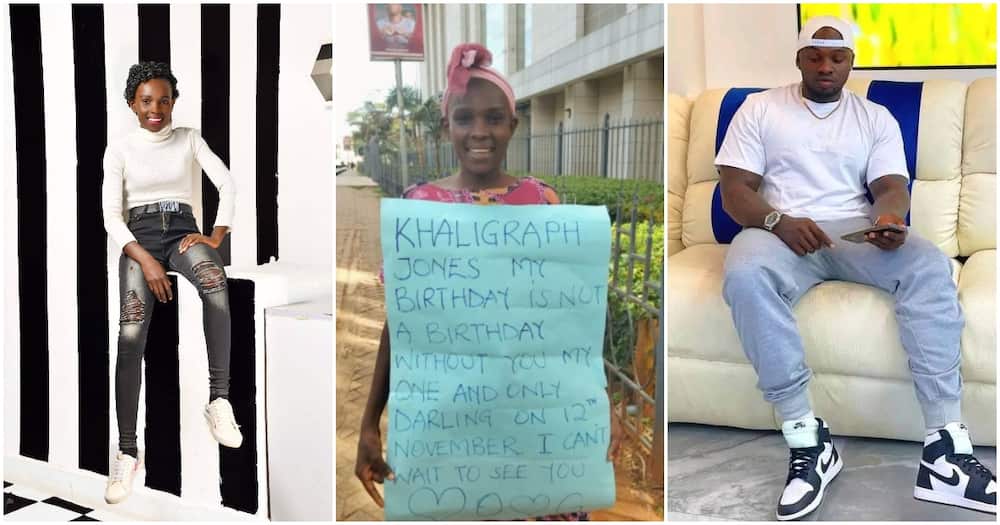 KHALIGRAPH
JONES MY
BIRTHDAY IS NOT
A BIRTHDAY
WITHOUT YOU MY
ONE AND ONLY
DARLING ON 12TH
NOVEMBER I CAN'T
WAIT TO SEE YOU